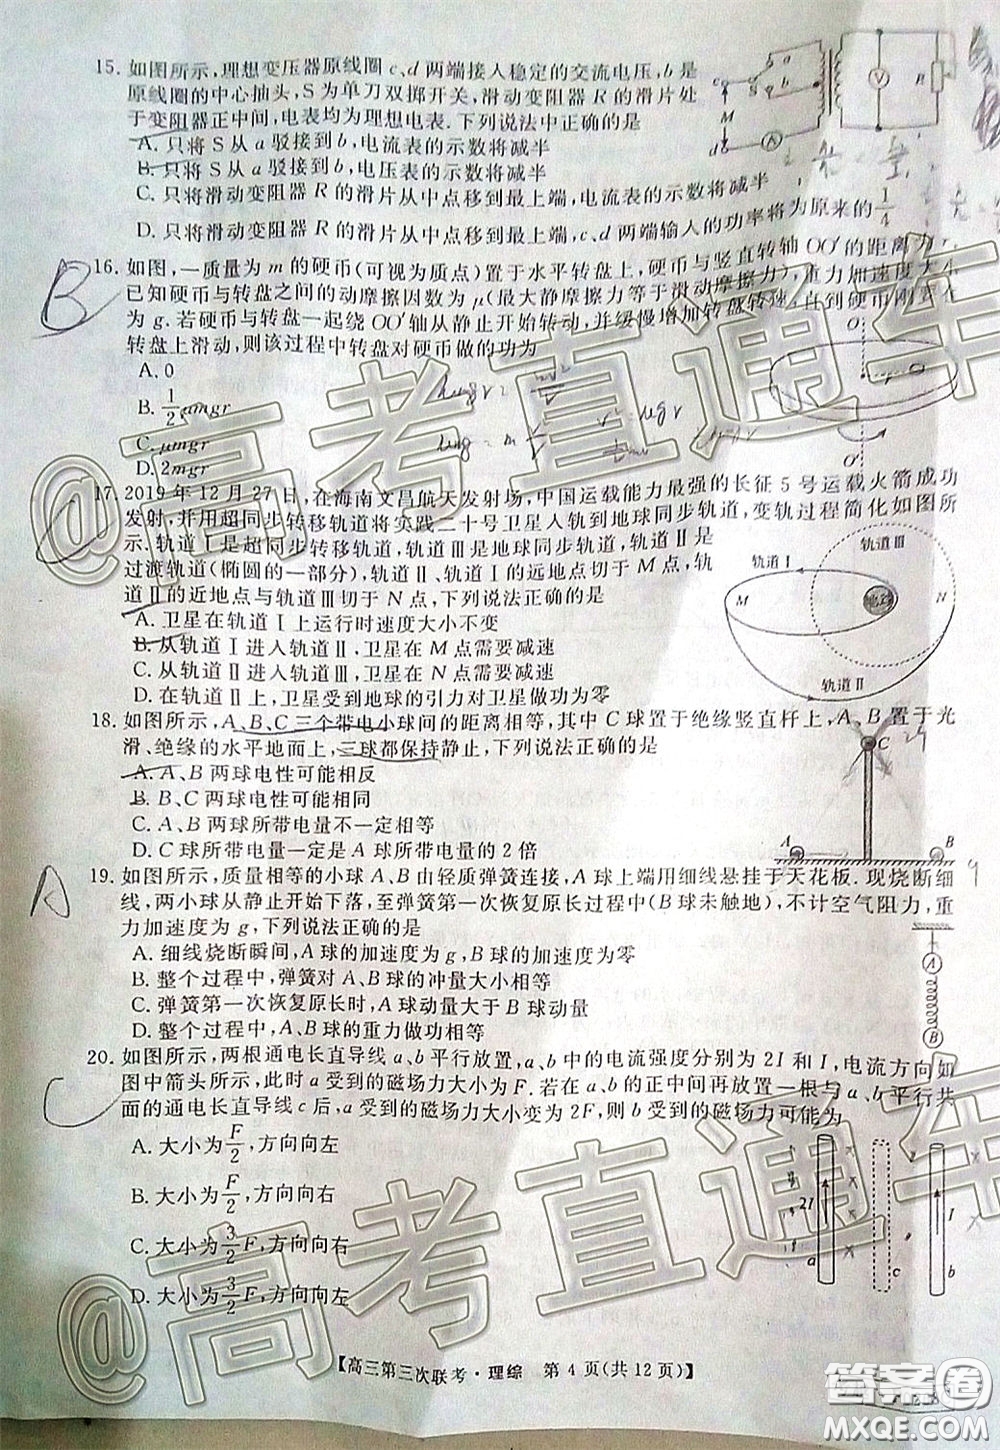 15. 如图所示,理想变压器原线圈c、d两端接入稳定的交流电压,b是
原线圈的中心抽头,S为单刀双掷开关,滑动变阻器R的滑片处
于变阻器正中间,电表均为理想电表.下列说法中正确的是
A. 只将S从a驳接到b,电流表的示数将减半
B. 只将S从a驳接到b,电压表的示数将减半
C. 只将滑动变阻器R的滑片从中点移到最上端,电流表的示数将减半
D. 只将滑动变阻器R的滑片从中点移到最上端,c、d两端输入的功率将为原来的1/4
16. 如图,一质量为m的硬币(可视为质点)置于水平转盘上,硬币与竖直转轴OO′的距离为r,
已知硬币与转盘之间的动摩擦因数为μ(最大静摩擦力等于滑动摩擦力),重力加速度
为g.若硬币与转盘一起绕OO′轴从静止开始转动,并缓慢增加转盘转速,直到硬币刚要在
转盘上滑动,则该过程中转盘对硬币做的功为
A. 0
B. 1/2 μmgr
C. μmgr
D. 2mgr
17. 2019年12月27日,在海南文昌航天发射场,中国运载能力最强的长征5号运载火箭成功
发射,并用超同步转移轨道将实践二十号卫星入轨到地球同步轨道,变轨过程简化如图所
示.轨道Ⅰ是超同步转移轨道,轨道Ⅲ是地球同步轨道,轨道Ⅱ是
过渡轨道(椭圆的一部分),轨道Ⅱ、轨道Ⅰ的远地点切于M点,轨
道Ⅱ的近地点与轨道Ⅲ切于N点,下列说法正确的是
A. 卫星在轨道Ⅰ上运行时速度大小不变
B. 从轨道Ⅰ进入轨道Ⅱ,卫星在M点需要减速
C. 从轨道Ⅱ进入轨道Ⅲ,卫星在N点需要减速
D. 在轨道Ⅱ上,卫星受到地球的引力对卫星做功为零
轨道Ⅲ
轨道Ⅰ
M
地球
N
轨道Ⅱ
18. 如图所示,A、B、C三个带电小球间的距离相等,其中C球置于绝缘竖直杆上,A、B置于光
滑、绝缘的水平地面上,三球都保持静止,下列说法正确的是
A. A、B两球电性可能相反
B. B、C两球电性可能相同
C. A、B两球所带电量不一定相等
D. C球所带电量一定是A球所带电量的2倍
C
A
B
19. 如图所示,质量相等的小球A、B由轻质弹簧连接,A球上端用细线悬挂于天花板.现烧断细
线,两小球从静止开始下落,至弹簧第一次恢复原长过程中(B球未触地),不计空气阻力,重
力加速度为g,下列说法正确的是
A. 细线烧断瞬间,A球的加速度为g,B球的加速度为零
B. 整个过程中,弹簧对A、B球的冲量大小相等
C. 弹簧第一次恢复原长时,A球动量大于B球动量
D. 整个过程中,A、B球的重力做功相等
A
B
20. 如图所示,两根通电长直导线a、b平行放置,a、b中的电流强度分别为2I和I,电流方向如
图中箭头所示,此时a受到的磁场力大小为F.若在a、b的正中间再放置一根与a、b平行共
面的通电长直导线c后,a受到的磁场力大小变为2F,则b受到的磁场力可能为
A. 大小为F/2,方向向左
B. 大小为F/2,方向向右
C. 大小为3/2 F,方向向右
D. 大小为3/2 F,方向向左
2I
a
c
I
b
【高三第三次联考·理综 第4页(共12页)】
@高考直通车
@高考直通车
答案圈
MXQE.COM